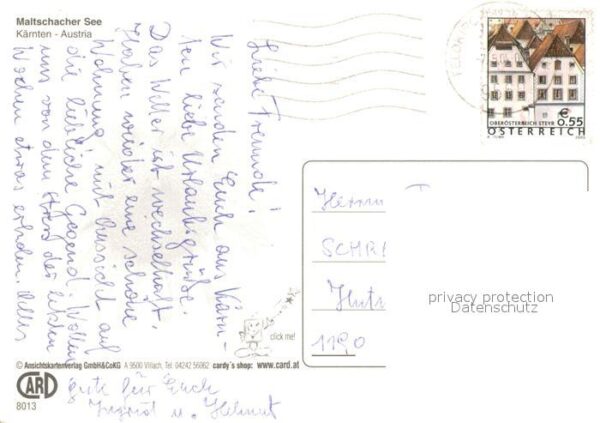 Maltschacher See
Kärnten - Austria
Liebe Freunde!
Wir senden Euch aus Kärn-
ten liebe Urlaubsgrüße.
Das Wetter ist wechselhaft.
Haben wieder eine schöne
Wohnung mit Aussicht auf
die liebliche Gegend. Wollen
uns von dem Stress der letzten
Wochen etwas erholen. Alles
gute für Euch
Ingrid u. Helmut
OBERÖSTERREICH STEYR
€ 0.55
ÖSTERREICH
Herrn
SCHR
1190
privacy protection
Datenschutz
click me!
© Ansichtskartenverlag GmbH&CoKG A 9500 Villach, Tel. 04242 56062 cardy's shop: www.card.at
CARD
8013